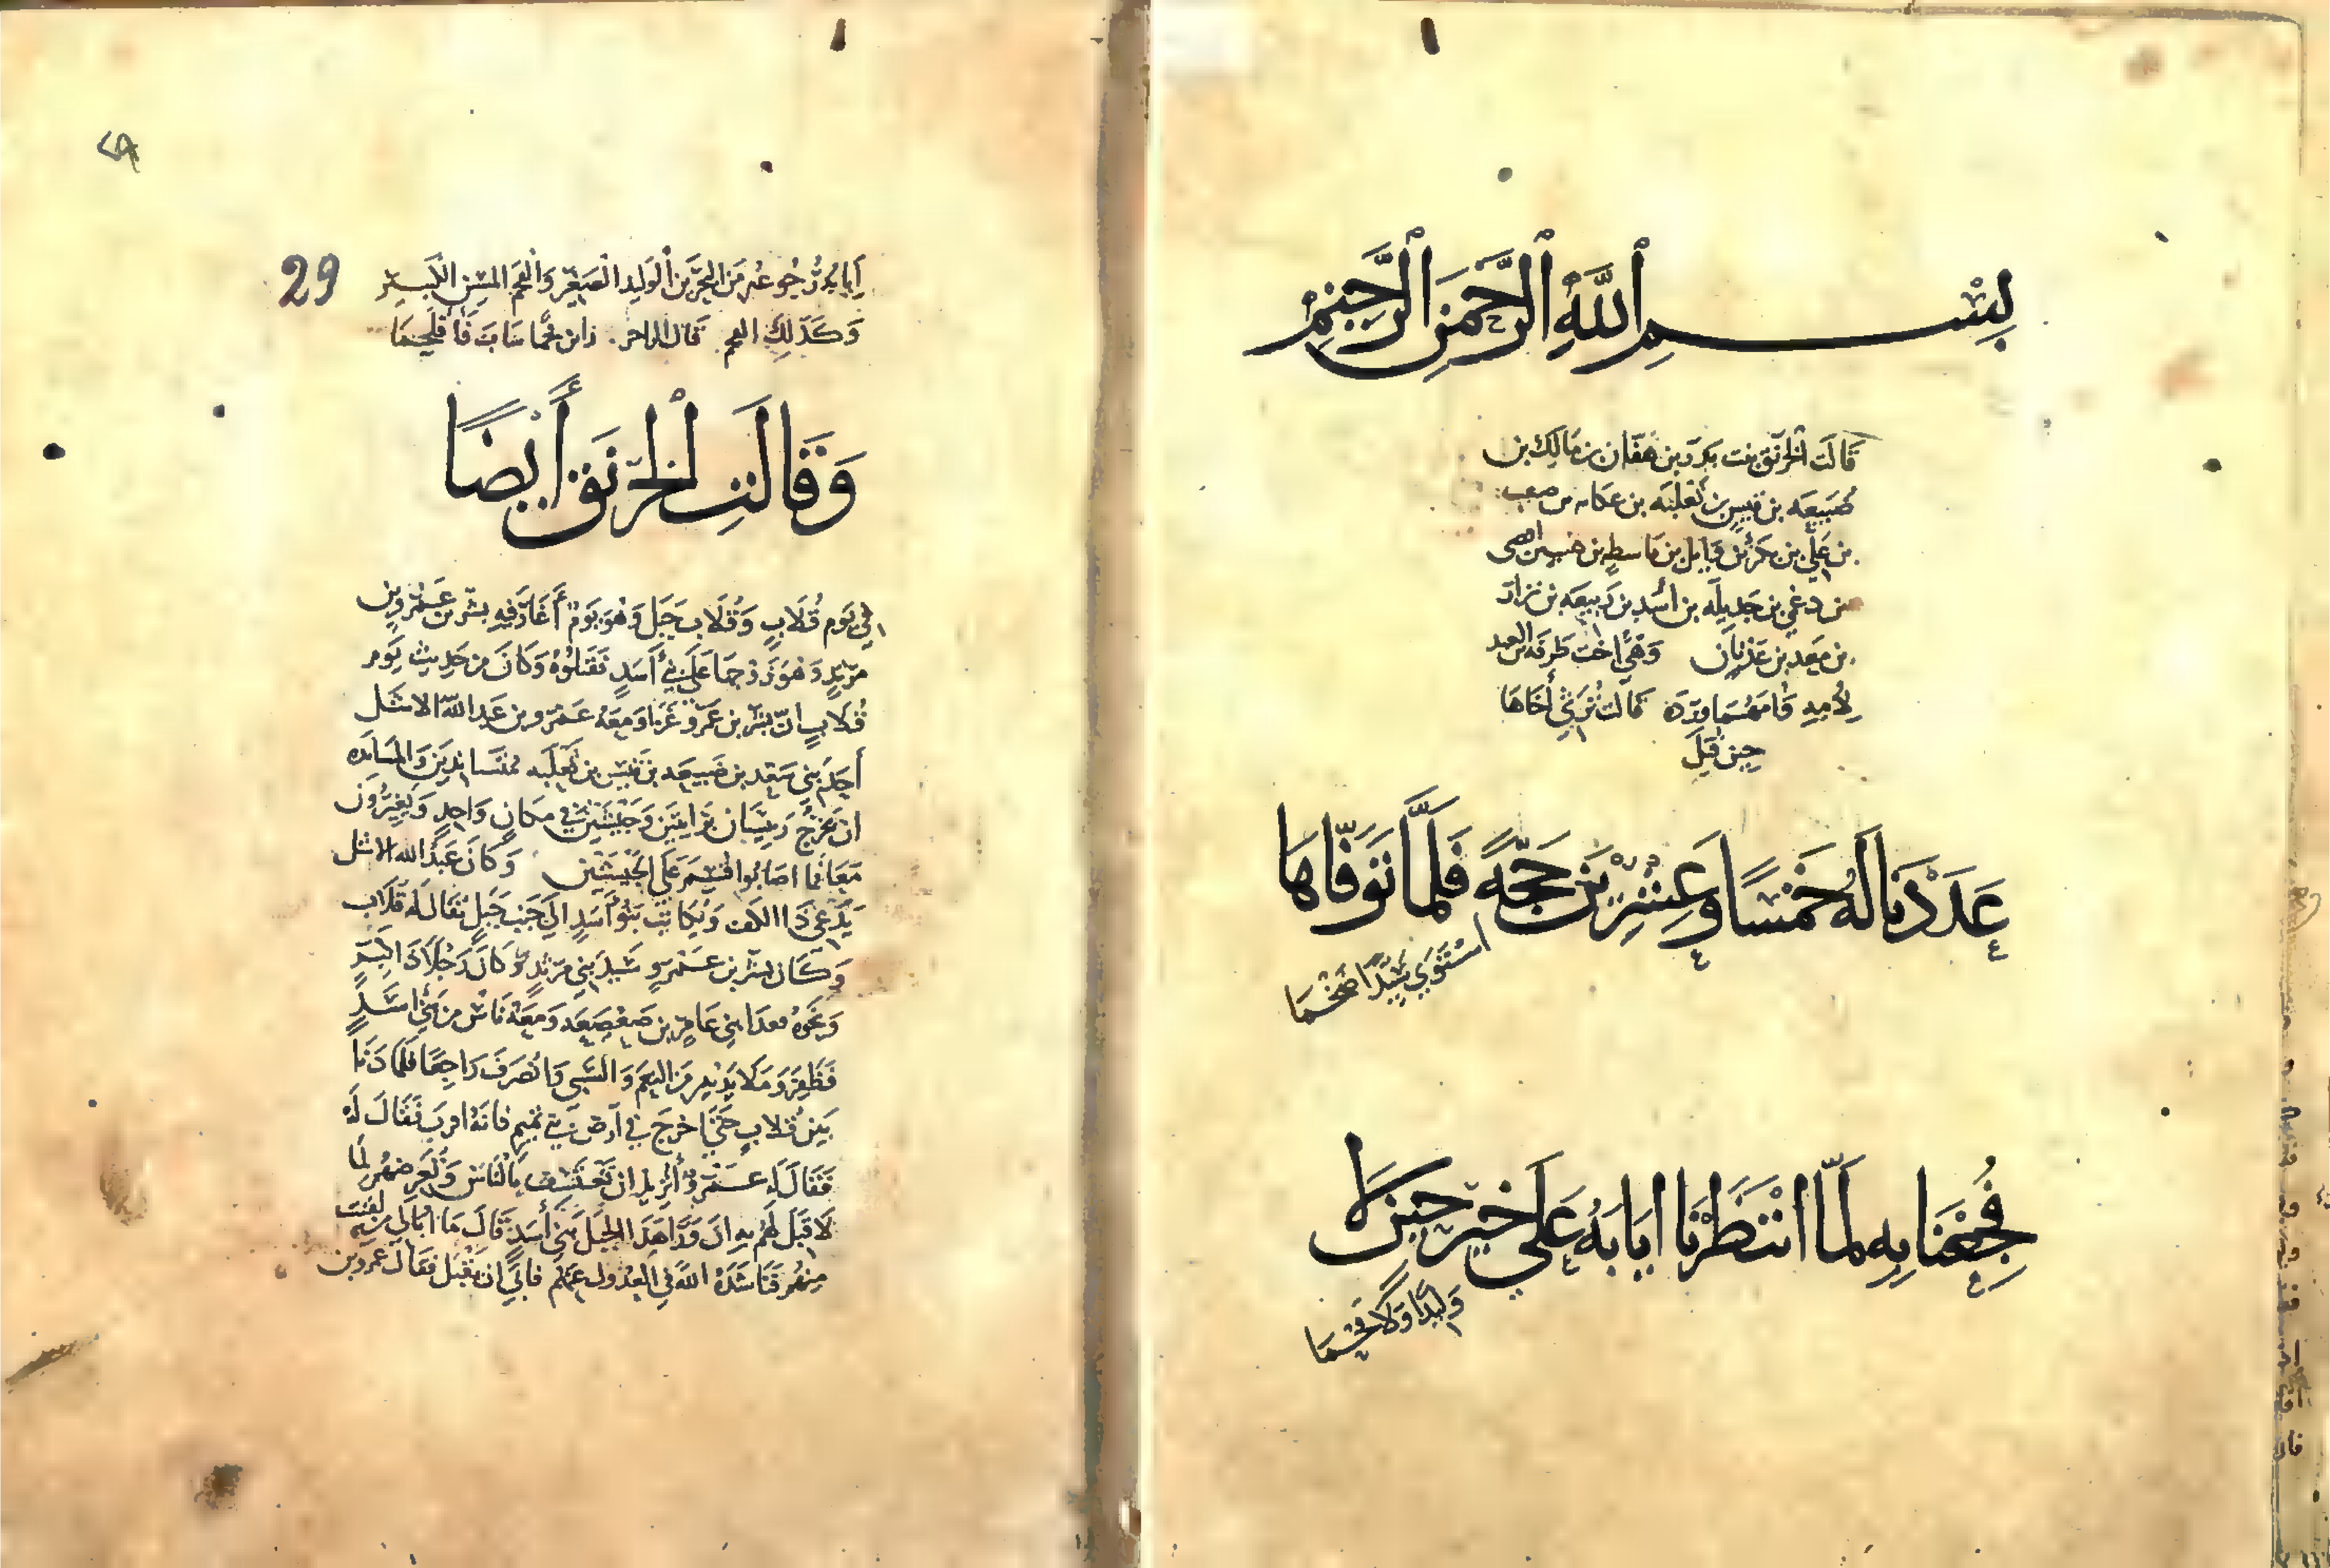 بِسْمِ ٱللَّهِ ٱلرَّحْمَنِ ٱلرَّحِيمِ
قَالَت ٱلخرنق بنت بن هفّان بن مَالِك بن
ضُبَيعَه بن قيس بن ثعلبَه بن عكابه بن صعب
بن عَلي بن بَكر بن وَايل بن قاسطِ بن هنب بن افصى
بن دعمي بن جَدِيلَه بن أسَدِ بن رَبيعَه بن نزار
بن مَعَد بن عَدنَان وَهيَ اخت طَرفَه بن العبد
لِأمهِ وَأمهُمَا وردَة قالت تَرثي أَخَاهَا
حِينَ قتِلَ
عَدَدْنَا لَهُ خَمْسًا وَعِشْرِينَ حَجّةً فَلَمَّا تَوَفّاهَا
اسْتَوَى سَيِّدًا ضَخْمَا
فُجِعْنَا بِهِ لَمّا انْتَظَرْنَا ايَابَهُ عَلَى خَيْرِ حِينٍ لَا
وَلِيدًا وَلَا قَحْمَا
29
من الوَلِيد الصَغِير وَالقحم المُسِن الكَبِير
وَكَذَلِكَ قال الراجز
وَقَالَتِ ٱلْخِرْنَق أَيْضًا
في يَوم قُلَابٍ وَقُلَاب جَبَل وَهُوَ يَوم أَغَارَ فيهِ بشْر بن عَمْرِو بن
مَرْثَدٍ وَهُوَ زَوجهَا عَلَى بَني أَسَدٍ فَقَتَلُوهُ وَكَانَ مِن حَدِيث يَوم
قُلَابٍ انّ بشْر بن عَمْرٍو غَزَا وَمَعَهُ عَمْرو بن عَبدِ اللّه الاشَل
أَحَدُ بني سَعْد بن ضُبَيعَه بن قَيْس بن ثَعلَبه مُتَسَانِدَيْن وَالمسَانَده
ان يَخرُجَ رَئِيسَان بِرَايتَين وَجَيْشَيْن في مَكَانٍ وَاحِدٍ وَيُغِيرُونَ
مَعًا فمَا اصَابُوا قُسِمَ عَلَى الجَيْشَيْن وَكَانَ عَبدُ الله الاشل
يُدْعَى ذَا الكف وَكَانَت بَنُو أَسَدٍ الَى جَنبِ جَبَلٍ يُقَالُ لَهُ قلَاب
وَكَانَ بشْر بن عَمْرٍو سَيِّدَ بَني مَرْثَدٍ وَكَانَ رَجُلًا
بَنِي عَامِر بن صَعْصَعَه وَمَعَهُ نَاسٌ مِن بَنِي أسَدٍ
فَظَفِرَ وَمَلَا يَدَيْهِ مِن النَعَم وَالسَّبي وَانصَرَفَ رَاجِعًا فَلَمَّا دَنَا
مِن قُلابٍ خرَجَ في أَرْض بَني تَمِيم فَانهُ اقرَب فَقَالَ لَهُ
فَقَالَ لَهُ عَمْرو أَتُريدُ ان تَعْتَسِف بِالنَّاس وَتُعَرِّضهُم لمَا
لَا قِبَلَ لَهُم بِهِ انّ وَرَاءَ هَذَا الجَبَل بَني أَسَدٍ قَالَ مَا ابَالِي مَن لَقيتُ
مِنهُم فَنَاشَدَهُ اللّهَ في العُدُول عَنهُم فَأَبَى ان يَقْبَل فَقَالَ عَمرو بن